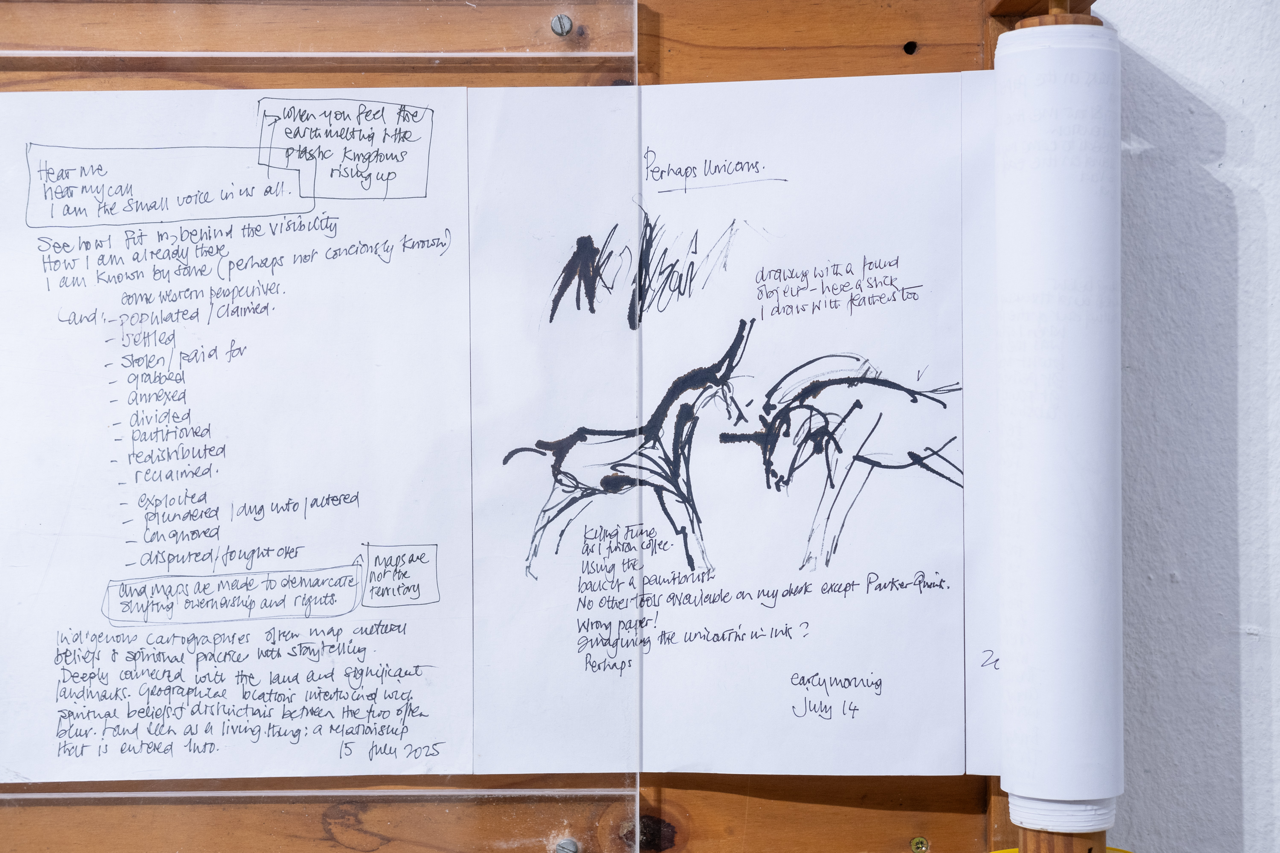 when you feel the
earth melting & the
plastic kingdoms
rising up
Hear me
hear my call
I am the small voice in us all.
See how I fit in, behind the visibility
How I am already there
I am known by some (perhaps not conciously known)
some western perspectives.
Land: - populated / claimed.
- settled
- stolen / paid for
- grabbed
- annexed
- divided
- partitioned
- redistributed
- reclaimed.
- exploited
- plundered / dug into / altered
- conquored
- disputed / fought over
and maps are made to demarcate
shifting ownership and rights.
maps are
not the
territory
Indigenous cartographies often map cultural
beliefs & spiritual practice with storytelling.
Deeply connected with the land and significant
landmarks. Geographical locations intertwined with
spiritual beliefs & distinctions between the two often
blur. Land seen as a living thing: a relationship
that is entered into.
15 July 2025
Perhaps Unicorns.
drawing with a found
object - here a stick
I draw with feathers too
Killing Time
as I finish coffee.
Using the
back of a paintbrush
No other tools available on my desk except Parker Quink.
Wrong paper!
Imagining the unicorns in ink?
Perhaps
early morning
July 14